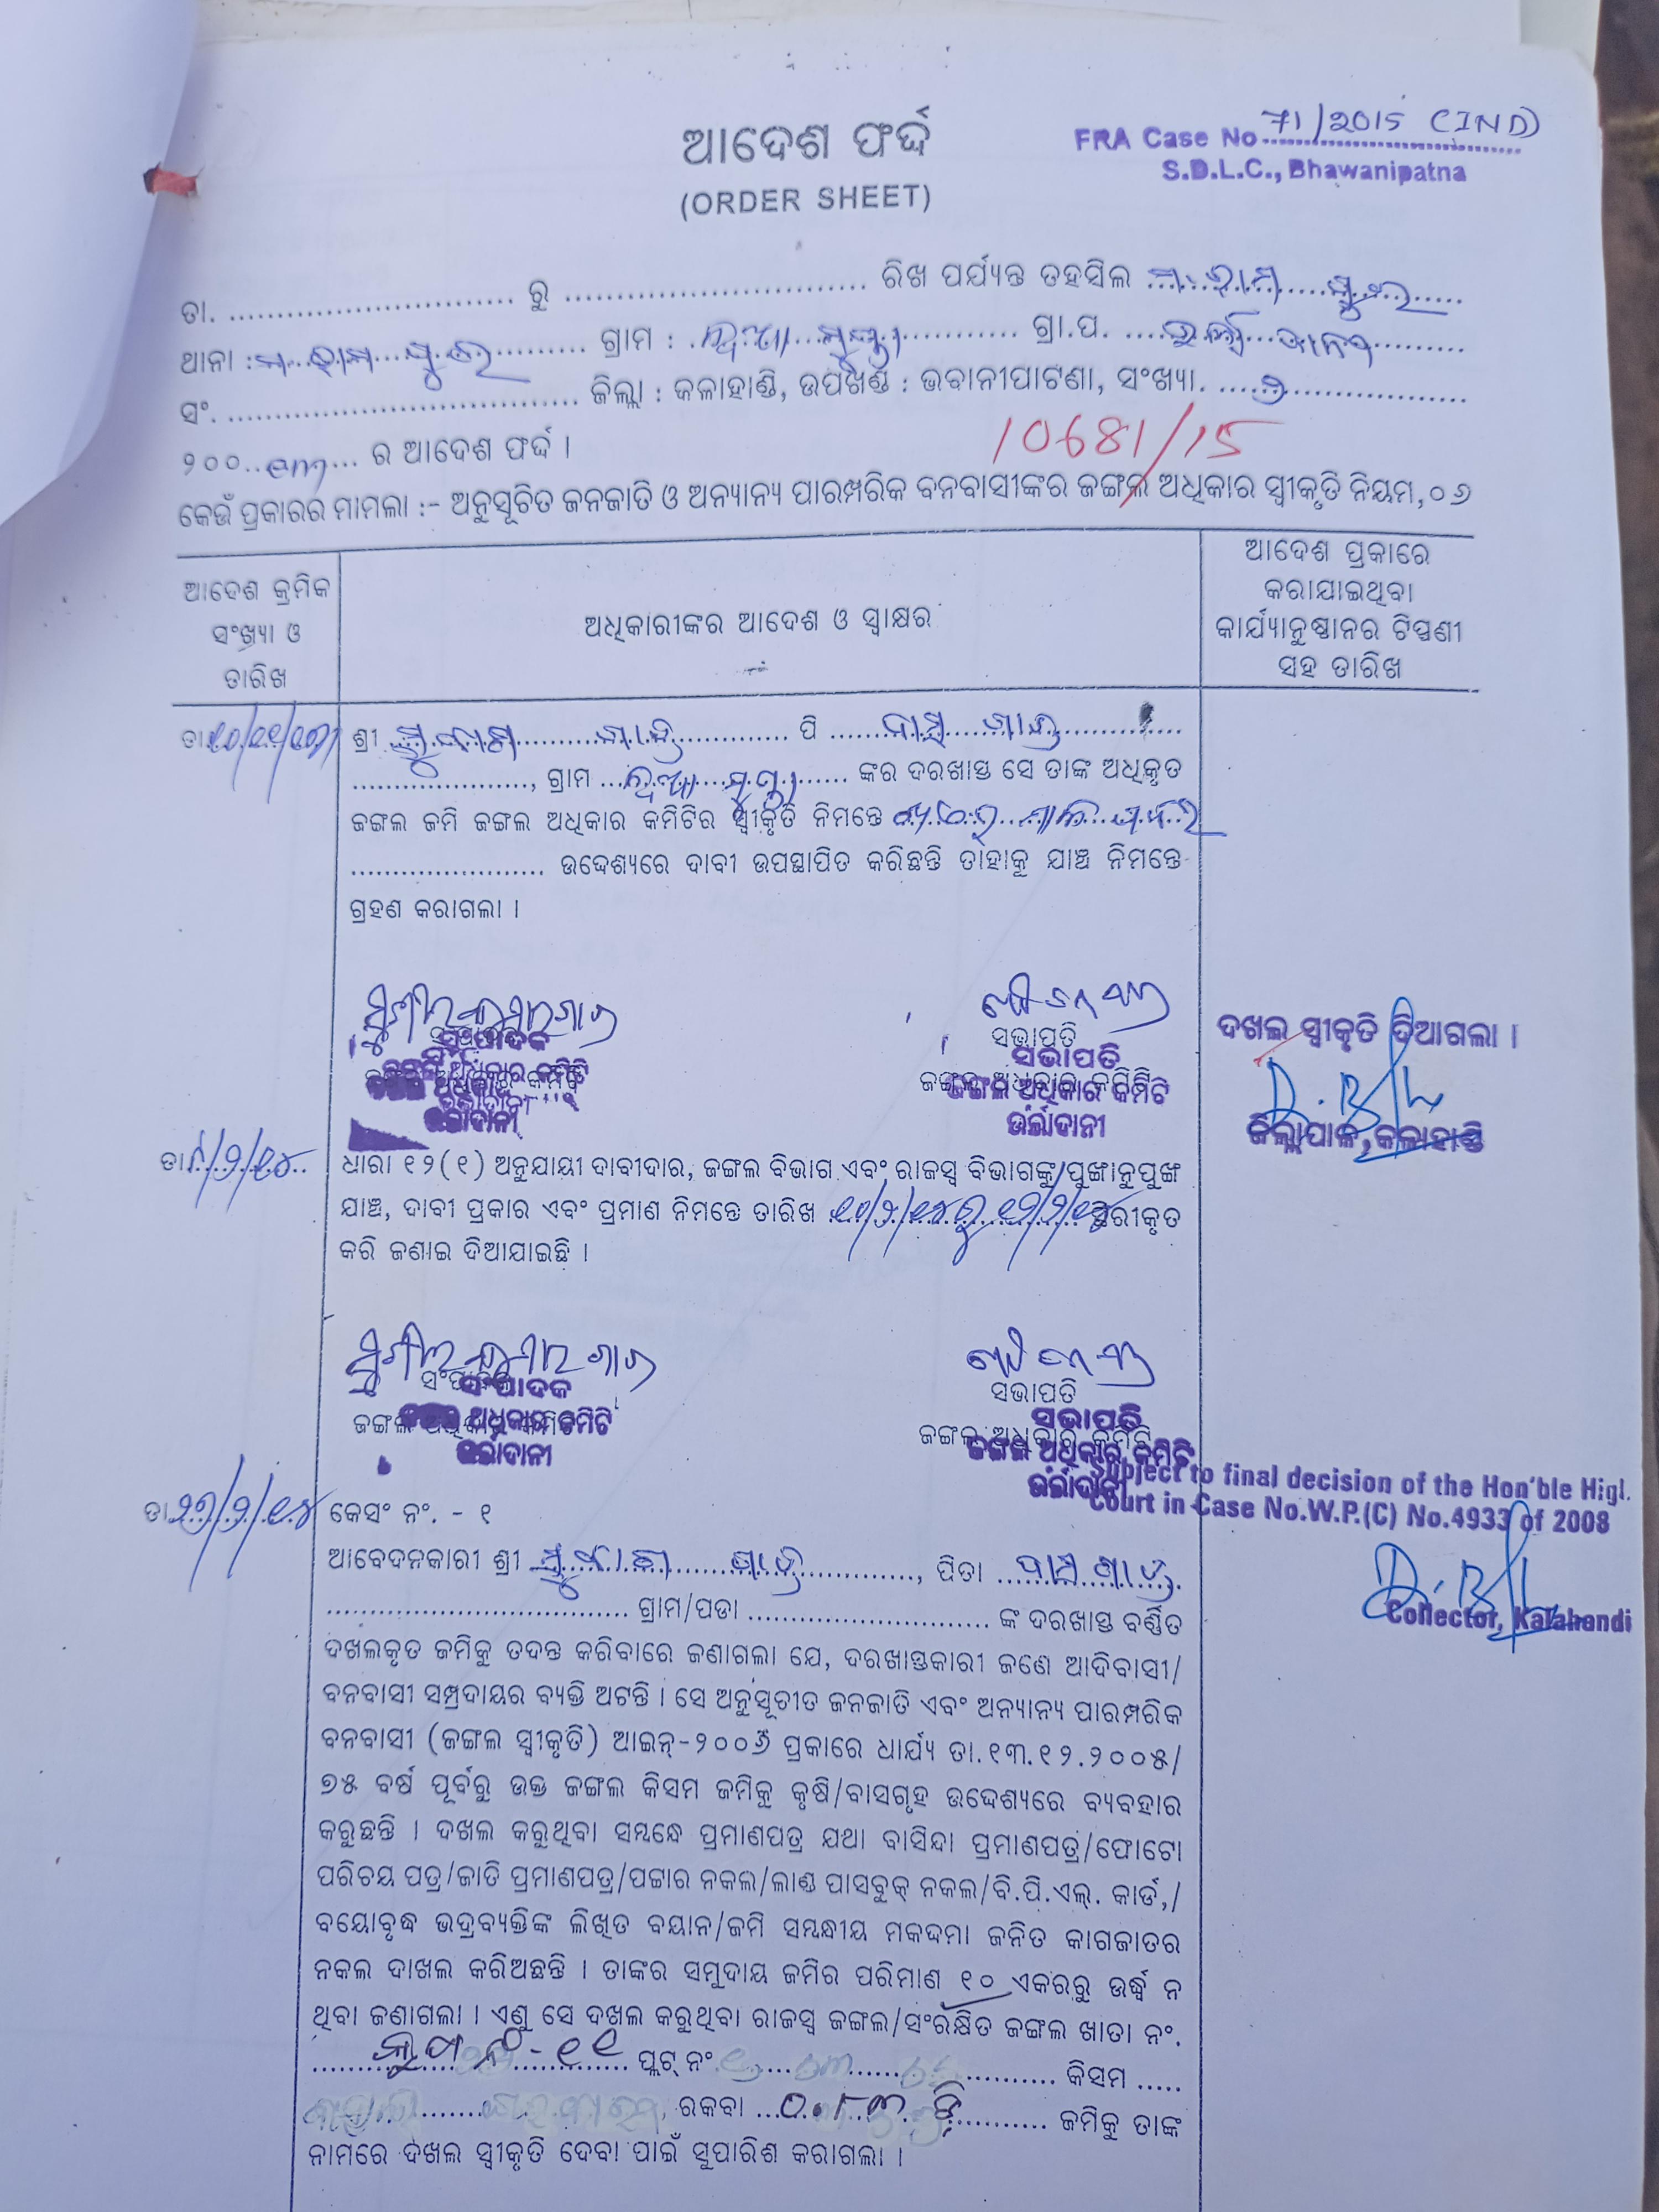 ଆଦେଶ ଫର୍ଦ୍ଦ
(ORDER SHEET)
FRA Case No 71/2015 (IND)
S.D.L.C., Bhawanipatna
ତା. ........ ରୁ ........ ରିଖ ପର୍ଯ୍ୟନ୍ତ ତହସିଲ ମ. ରାମପୁର
ଥାନା : ମ. ରାମପୁର ଗ୍ରାମ : ନୂଆମୁଣ୍ଡା ଗ୍ରା.ପ. ଉର୍ଲାଦାନୀ
ସଂ. ........ ଜିଲ୍ଲା : କଳାହାଣ୍ଡି, ଉପଖଣ୍ଡ : ଭବାନୀପାଟଣା, ସଂଖ୍ୟା.
୨୦୦ ... ର ଆଦେଶ ଫର୍ଦ୍ଦ ।
10681/15
କେଉଁ ପ୍ରକାରର ମାମଲା :- ଅନୁସୂଚିତ ଜନଜାତି ଓ ଅନ୍ୟାନ୍ୟ ପାରମ୍ପରିକ ବନବାସୀଙ୍କର ଜଙ୍ଗଲ ଅଧିକାର ସ୍ୱୀକୃତି ନିୟମ,୦୬
ଆଦେଶ କ୍ରମିକ
ସଂଖ୍ୟା ଓ
ତାରିଖ
ଅଧିକାରୀଙ୍କର ଆଦେଶ ଓ ସ୍ୱାକ୍ଷର
ଆଦେଶ ପ୍ରକାରେ
କରାଯାଇଥିବା
କାର୍ଯ୍ୟାନୁଷ୍ଠାନର ଟିପ୍ପଣୀ
ସହ ତାରିଖ
ତା.
ଶ୍ରୀ ........ ପି ........
........, ଗ୍ରାମ ନୂଆମୁଣ୍ଡା ଙ୍କର ଦରଖାସ୍ତ ସେ ତାଙ୍କ ଅଧିକୃତ
ଜଙ୍ଗଲ ଜମି ଜଙ୍ଗଲ ଅଧିକାର କମିଟିର ସ୍ୱୀକୃତି ନିମନ୍ତେ
........ ଉଦ୍ଦେଶ୍ୟରେ ଦାବୀ ଉପସ୍ଥାପିତ କରିଛନ୍ତି ତାହାକୁ ଯାଞ୍ଚ ନିମନ୍ତେ
ଗ୍ରହଣ କରାଗଲା ।
ସଂପାଦକ
ଜଙ୍ଗଲ ଅଧିକାର କମିଟି
ଉର୍ଲାଦାନୀ
ସଭାପତି
ସଭାପତି
ଜଙ୍ଗଲ ଅଧିକାର କମିଟି
ଉର୍ଲାଦାନୀ
ଦଖଲ ସ୍ୱୀକୃତି ଦିଆଗଲା ।
ଜିଲ୍ଲାପାଳ,କଳାହାଣ୍ଡି
ତା.
ଧାରା ୧୨(୧) ଅନୁଯାୟୀ ଦାବୀଦାର, ଜଙ୍ଗଲ ବିଭାଗ ଏବଂ ରାଜସ୍ୱ ବିଭାଗଙ୍କୁ ପୁଙ୍ଖାନୁପୁଙ୍ଖ
ଯାଞ୍ଚ, ଦାବୀ ପ୍ରକାର ଏବଂ ପ୍ରମାଣ ନିମନ୍ତେ ତାରିଖ ........ ସ୍ଥିରୀକୃତ
କରି ଜଣାଇ ଦିଆଯାଇଛି ।
ସଂପାଦକ
ଜଙ୍ଗଲ ଅଧିକାର କମିଟି
ଉର୍ଲାଦାନୀ
ସଭାପତି
ସଭାପତି
ଜଙ୍ଗଲ ଅଧିକାର କମିଟି
ଉର୍ଲାଦାନୀ
Subject to final decision of the Hon'ble Higl.
Court in Case No.W.P.(C) No.4933 of 2008
Collector, Kalahandi
ତା.
କେସଂ ନଂ. - ୧
ଆବେଦନକାରୀ ଶ୍ରୀ ........, ପିତା ........
........ ଗ୍ରାମ/ପଡା ........ ଙ୍କ ଦରଖାସ୍ତ ବର୍ଣ୍ଣିତ
ଦଖଲକୃତ ଜମିକୁ ତଦନ୍ତ କରିବାରେ ଜଣାଗଲା ଯେ, ଦରଖାସ୍ତକାରୀ ଜଣେ ଆଦିବାସୀ/
ବନବାସୀ ସମ୍ପ୍ରଦାୟର ବ୍ୟକ୍ତି ଅଟନ୍ତି । ସେ ଅନୁସୂଚୀତ ଜନଜାତି ଏବଂ ଅନ୍ୟାନ୍ୟ ପାରମ୍ପରିକ
ବନବାସୀ (ଜଙ୍ଗଲ ସ୍ୱୀକୃତି) ଆଇନ୍-୨୦୦୬ ପ୍ରକାରେ ଧାର୍ଯ୍ୟ ତା.୧୩.୧୨.୨୦୦୫/
୭୫ ବର୍ଷ ପୂର୍ବରୁ ଉକ୍ତ ଜଙ୍ଗଲ କିସମ ଜମିକୁ କୃଷି/ବାସଗୃହ ଉଦ୍ଦେଶ୍ୟରେ ବ୍ୟବହାର
କରୁଛନ୍ତି । ଦଖଲ କରୁଥିବା ସମ୍ବନ୍ଧେ ପ୍ରମାଣପତ୍ର ଯଥା ବାସିନ୍ଦା ପ୍ରମାଣପତ୍ର/ଫୋଟୋ
ପରିଚୟ ପତ୍ର/ଜାତି ପ୍ରମାଣପତ୍ର/ପଟ୍ଟାର ନକଲ/ଲାଣ୍ଡ ପାସବୁକ୍ ନକଲ/ବି.ପି.ଏଲ୍. କାର୍ଡ,/
ବୟୋବୃଦ୍ଧ ଭଦ୍ରବ୍ୟକ୍ତିଙ୍କ ଲିଖିତ ବୟାନ/ଜମି ସମ୍ବନ୍ଧୀୟ ମକଦ୍ଦମା ଜନିତ କାଗଜାତର
ନକଲ ଦାଖଲ କରିଅଛନ୍ତି । ତାଙ୍କର ସମୁଦାୟ ଜମିର ପରିମାଣ ୧୦ ଏକରରୁ ଉର୍ଦ୍ଧ୍ୱ ନ
ଥିବା ଜଣାଗଲା । ଏଣୁ ସେ ଦଖଲ କରୁଥିବା ରାଜସ୍ୱ ଜଙ୍ଗଲ/ସଂରକ୍ଷିତ ଜଙ୍ଗଲ ଖାତା ନଂ.
........ ପ୍ଲଟ୍ ନଂ ........ କିସମ .....
........ ରକବା ........ ଜମିକୁ ତାଙ୍କ
ନାମରେ ଦଖଲ ସ୍ୱୀକୃତି ଦେବା ପାଇଁ ସୁପାରିଶ କରାଗଲା ।